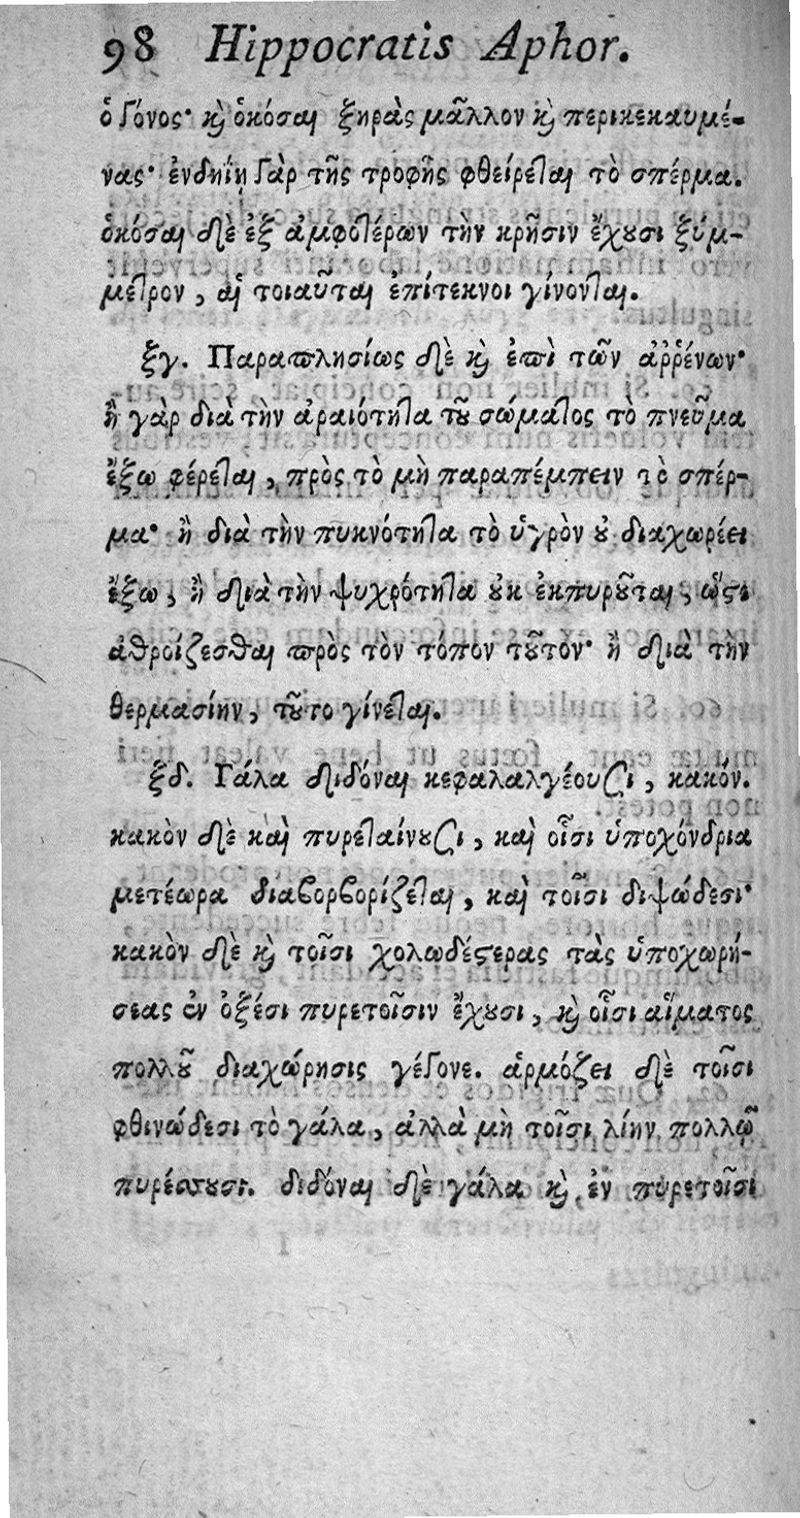 98 Hippocratis Aphor.
ὁ γόνος· καὶ ὁκόσαι ξηρὰς μᾶλλον καὶ περικεκαυμέ-
νας· ἐνδηΐῃ γὰρ τῆς τροφῆς φθείρεται τὸ σπέρμα.
ὁκόσαι δὲ ἐξ ἀμφοτέρων τὴν κρῆσιν ἔχουσι ξύμ-
μετρον, αἱ τοιαῦται ἐπίτεκνοι γίνονται.
ξγ. Παραπλησίως δὲ καὶ ἐπὶ τῶν ἀῤῥένων·
ἢ γὰρ διὰ τὴν ἀραιότητα τοῦ σώματος τὸ πνεῦμα
ἔξω φέρεται, πρὸς τὸ μὴ παραπέμπειν τὸ σπέρ-
μα· ἢ διὰ τὴν πυκνότητα τὸ ὑγρὸν οὐ διαχωρέει
ἔξω, ἢ διὰ τὴν ψυχρότητα οὐκ ἐκπυροῦται, ὥστι
ἀθροίζεσθαι πρὸς τὸν τόπον τοῦτον· ἢ διὰ τὴν
θερμασίην, τοῦτο γίνεται.
ξδ. Γάλα διδόναι κεφαλαλγέουσι, κακόν.
κακὸν δὲ καὶ πυρεταίνουσι, καὶ οἷσι ὑποχόνδρια
μετέωρα διαβορβορίζεται, καὶ τοῖσι διψώδεσι·
κακὸν δὲ καὶ τοῖσι χολωδέστερας τὰς ὑποχωρή-
σεας ἐν ὀξέσι πυρετοῖσιν ἔχουσι, καὶ οἷσι αἵματος
πολλοῦ διαχώρησις γέγονε. ἁρμόζει δὲ τοῖσι
φθινώδεσι τὸ γάλα, ἀλλὰ μὴ τοῖσι λίην πολλῷ
πυρέσσουσι. διδόναι δὲ γάλα καὶ ἐν πυρετοῖσι